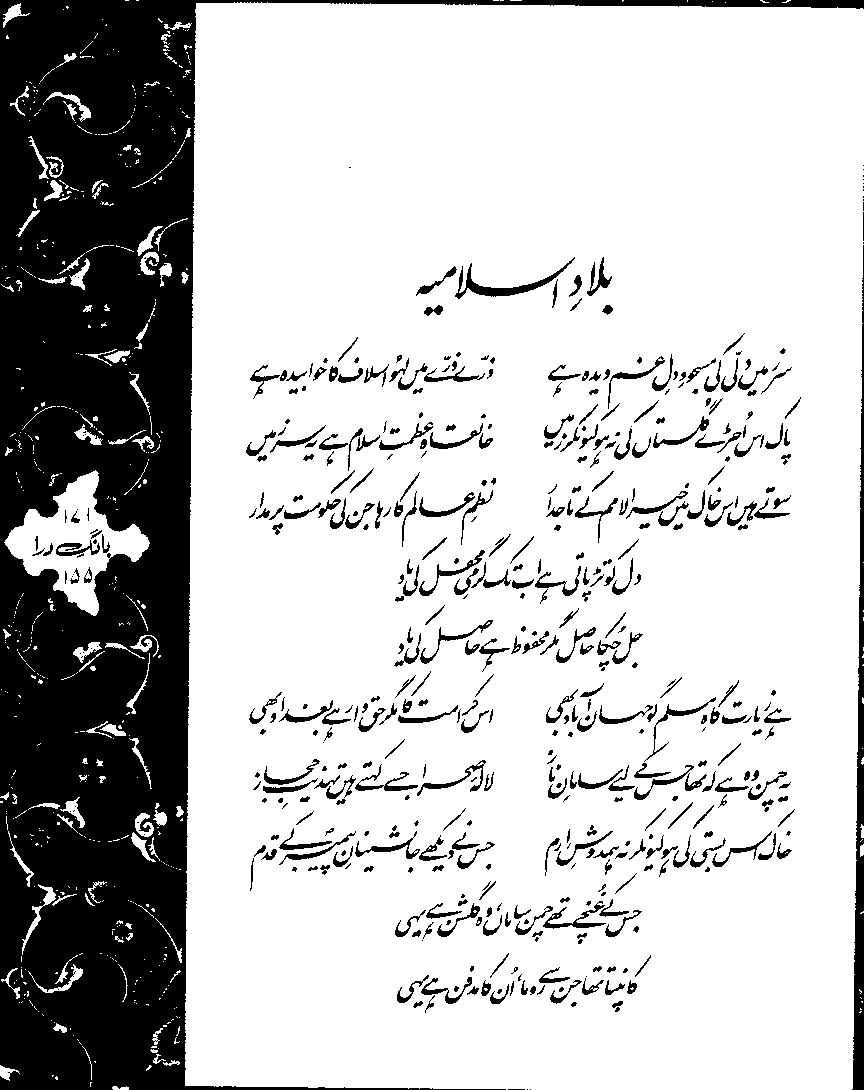 بلادِ اسلامیہ
سرزمیں دلّی کی مسجودِ دلِ غم دیدہ ہے ذرّے ذرّے میں لہُو اسلاف کا خوابیدہ ہے
پاک اس اُجڑے گُلستاں کی نہ ہو کیونکر زمیں خانقاہِ عظمتِ اسلام ہے یہ سرزمیں
سوتے ہیں اس خاک میں خیر الامم کے تاجدار نظمِ عالم کا رہا جن کی حکومت پر مدار
دل کو تڑپاتی ہے اب تک گرمیِ محفل کی یاد
جل چُکا حاصل مگر محفوظ ہے حاصل کی یاد
ہے زیارت گاہِ مسلم گو جہان آباد بھی اس کرامت کا مگر حق دار ہے بغداد بھی
یہ چمن وہ ہے کہ تھا جس کے لیے سامانِ ناز لالۂ صحرا جسے کہتے ہیں تہذیبِ حجاز
خاک اس بستی کی ہو کیونکر نہ ہمدوشِ ارم جس نے دیکھے جانشینانِ پیمبرؐ کے قدم
جس کے غُنچے تھے چمن ساماں، وہ گلشن ہے یہی
کانپتا تھا جن سے روما، اُن کا مدفن ہے یہی
۱۷۱
بانگِ درا
۱۵۵